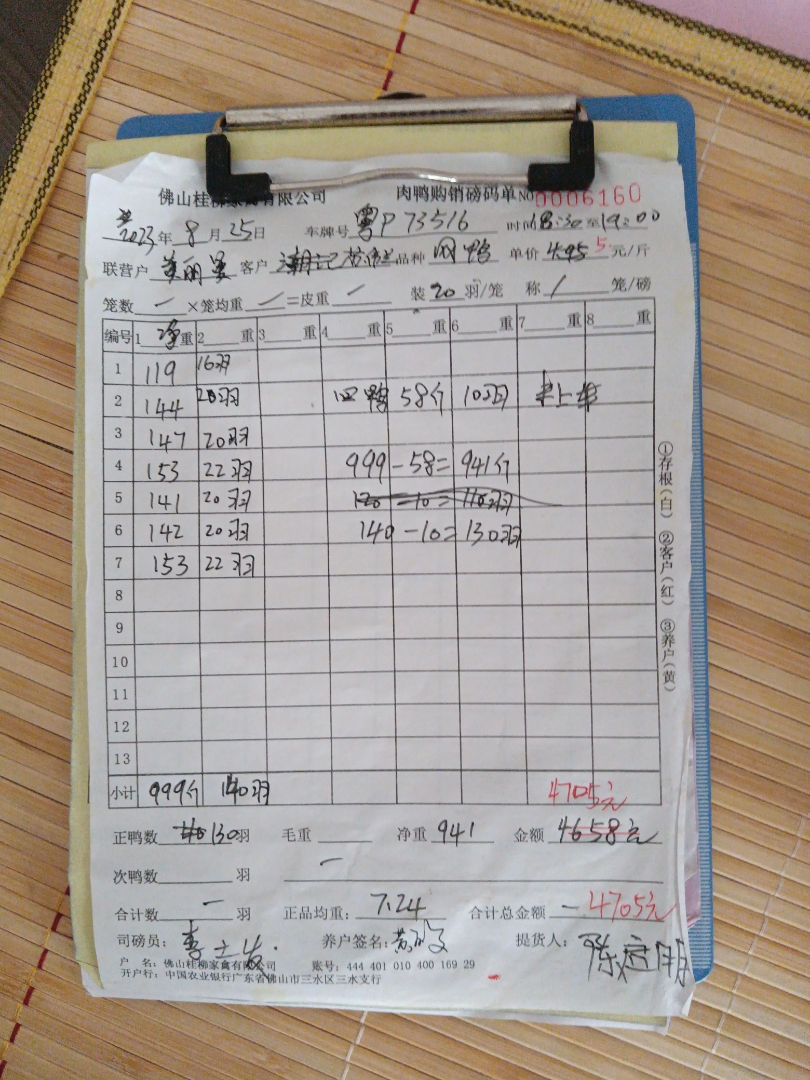 佛山桂柳家禽有限公司 肉鸭购销磅码单 NO 0006160
2023年 8月 25日 车牌号 粤P 73516 时间 18:30 至 19:00
联营户 客户 品种 网鸭 单价 4.95 5. 元/斤
笼数 一 ×笼均重 一 =皮重 一 装 20 羽/笼 称 / 笼/磅
编号 1 净重 2 重 3 重 4 重 5 重 6 重 7 重 8 重
1 119 16羽
2 144 20羽 鸭 58斤 10羽 未上车
3 147 20羽
4 153 22羽 999-58= 941斤
5 141 20羽 120-10= 110羽
6 142 20羽 140-10= 130羽
7 153 22羽
8
9
10
11
12
13
小计 999斤 140羽 4705元
正鸭数 130羽 毛重 净重 941 金额 4658元
次鸭数 羽 一
合计数 一 羽 正品均重: 7.24 合计总金额 一 4705元
司磅员: 养户签名: 提货人:
户 名: 佛山桂柳家禽有限公司 账号: 444 401 010 400 169 29
开户行: 中国农业银行广东省佛山市三水区三水支行
①存根(白) ②客户(红) ③养户(黄)